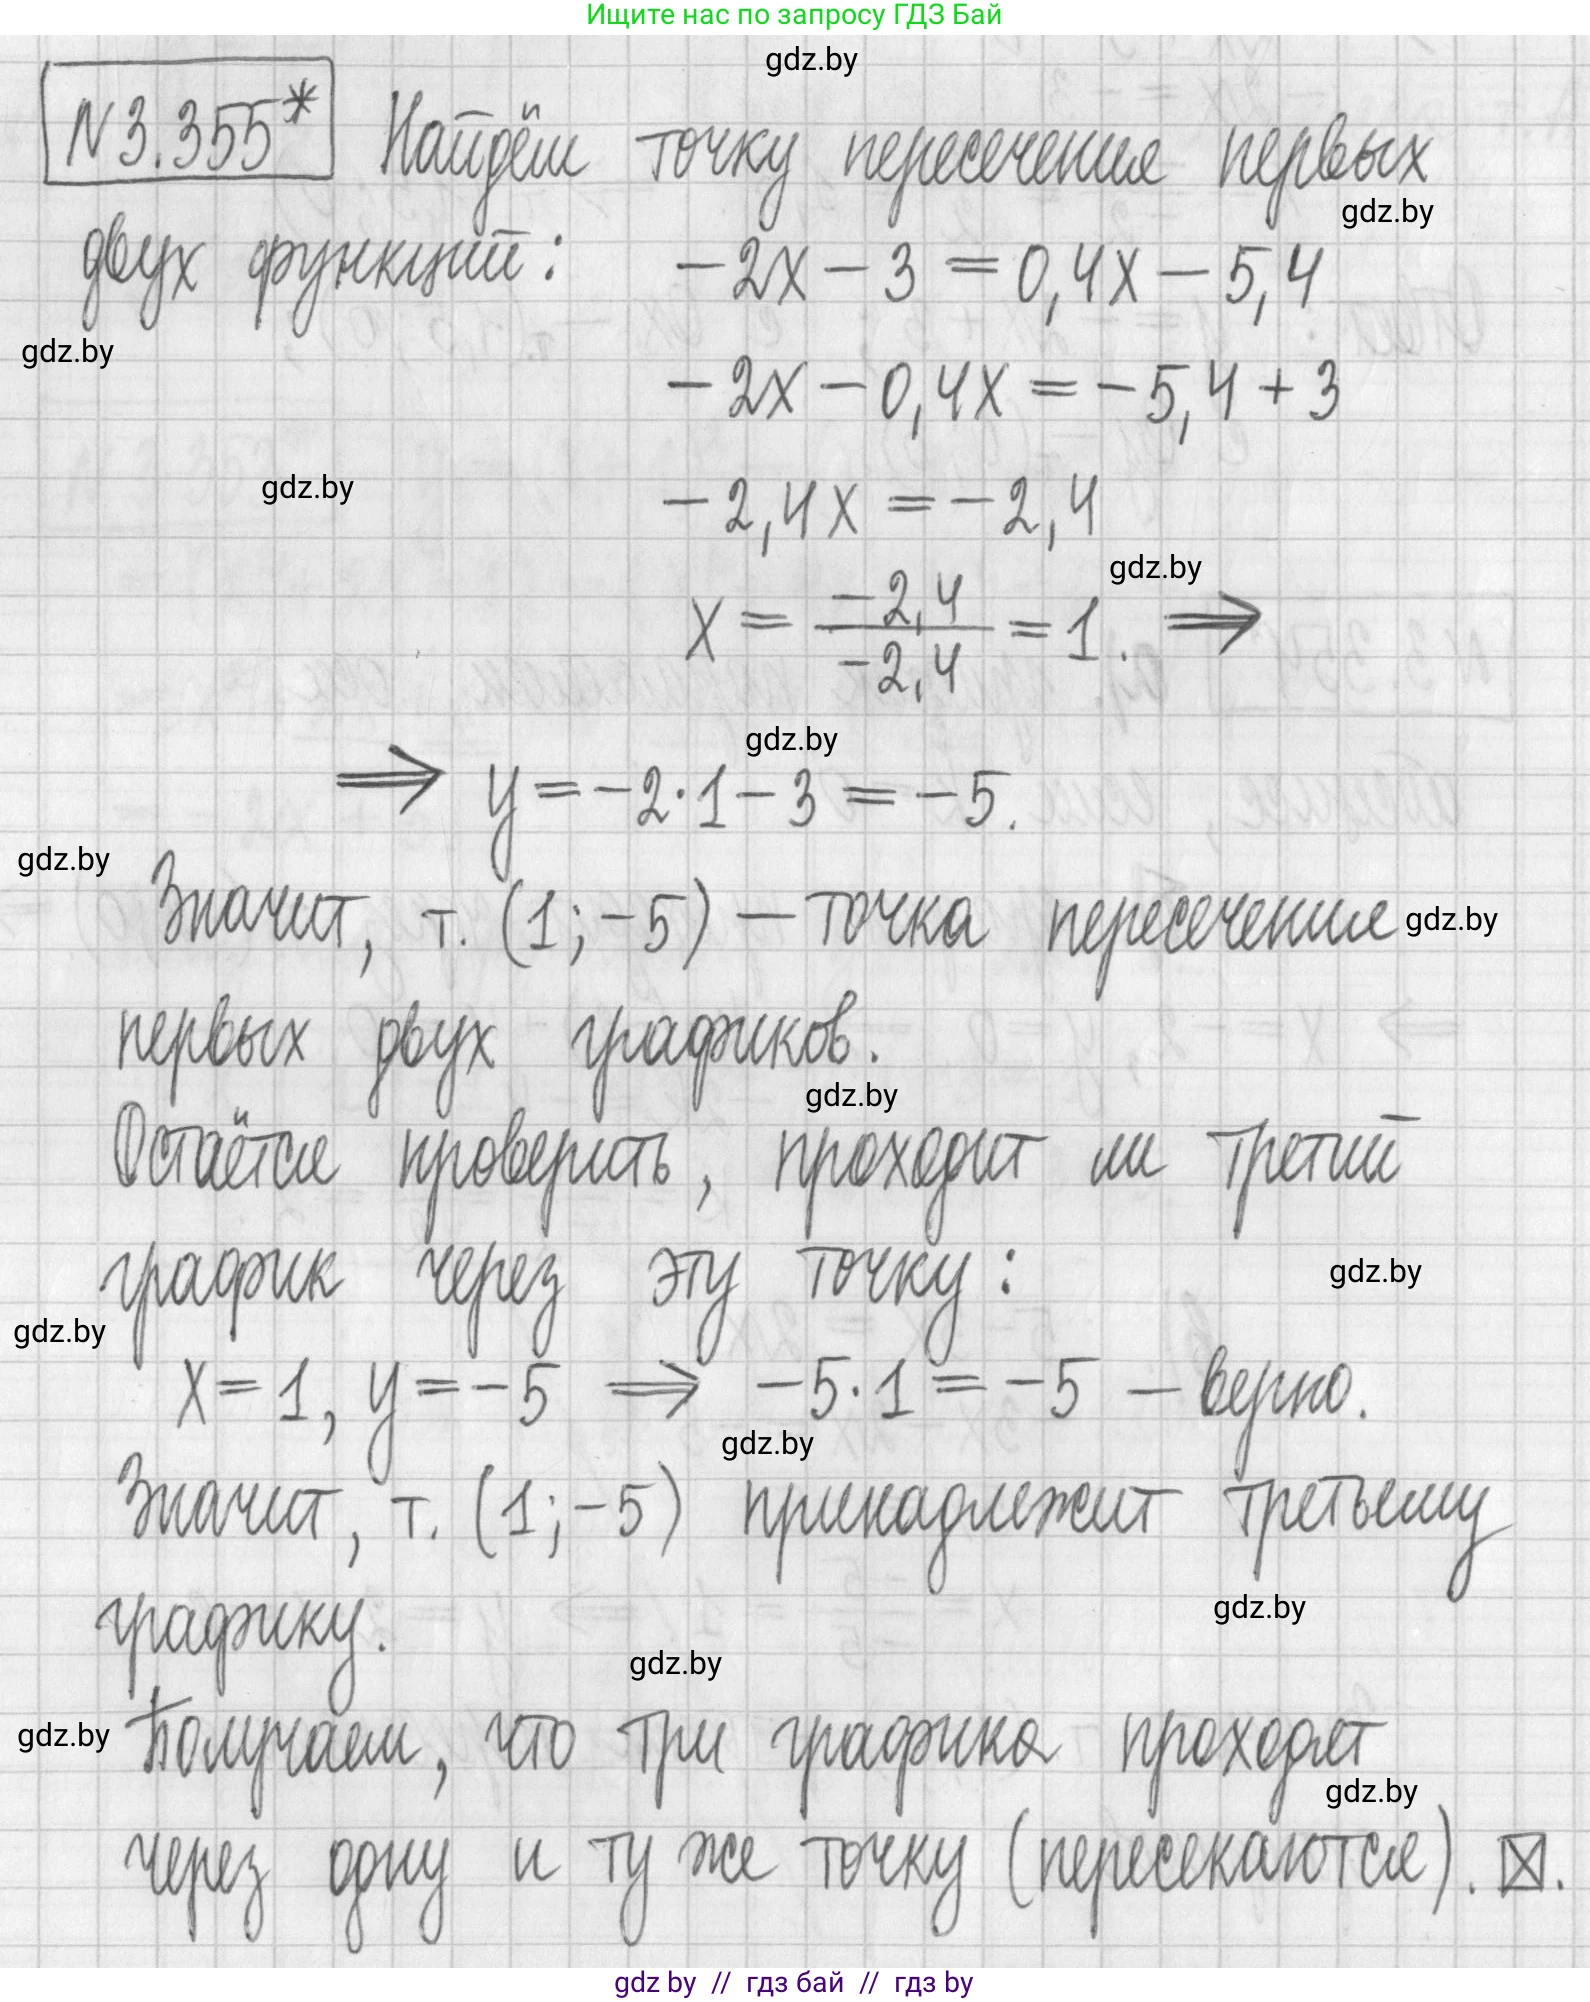 Ищите нас по запросу ГДЗ Бай
gdz.by
N3.355* Найдём точку пересечения первых
gdz.by
двух функций: -2x - 3 = 0,4x - 5,4
gdz.by
-2x - 0,4x = -5,4 + 3
gdz.by
-2,4x = -2,4
gdz.by
x = \frac{-2,4}{-2,4} = 1. ⇒
gdz.by
⇒ y = -2·1 - 3 = -5.
gdz.by
Значит, т. (1; -5) — точка пересечения gdz.by
первых двух графиков.
gdz.by
Остаётся проверить, проходит ли третий
график через эту точку:
gdz.by
gdz.by
x = 1, y = -5 ⇒ -5·1 = -5 — верно.
gdz.by
Значит, т. (1; -5) принадлежит третьему
gdz.by
графику.
gdz.by
gdz.by Получаем, что три графика проходят
gdz.by
через одну и ту же точку (пересекаются). ☒.
gdz by // гдз бай // гдз by